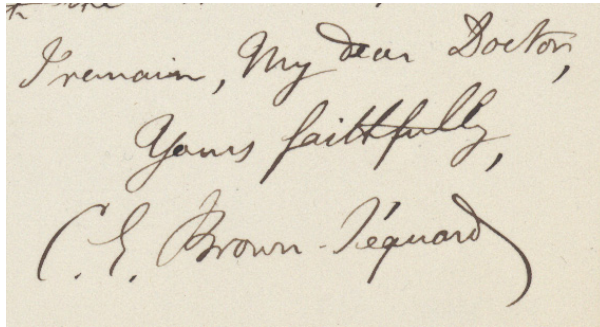 I remain, My dear Doctor,
Yours faithfully,
C. E. Brown-Séquard